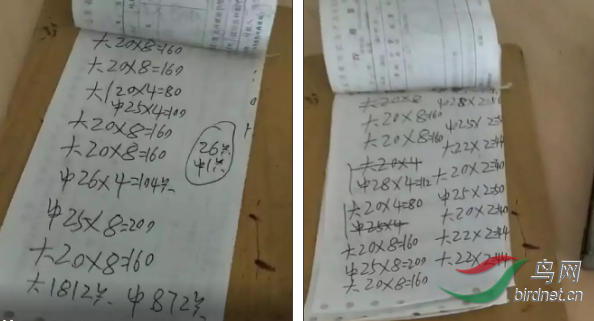 大20×8=160
大20×8=160
大20×4=80
中25×4=100
大20×8=160
大20×8=160
26只
中1只
中26×4=104只
中25×8=200
大20×8=160
大1812只 中872只
大20×8
大20×8=160
大20×8=160
大20×4
中28×4=112
大20×4=80
中25×4
大20×8=160
中25×8=200
大20×8=160
中28×2=56
中25×2=50
大22×2=44
大20×2=40
中25×2=50
大20×2=40
大22×2=44
大22×2=44
鸟网
birdnet.cn